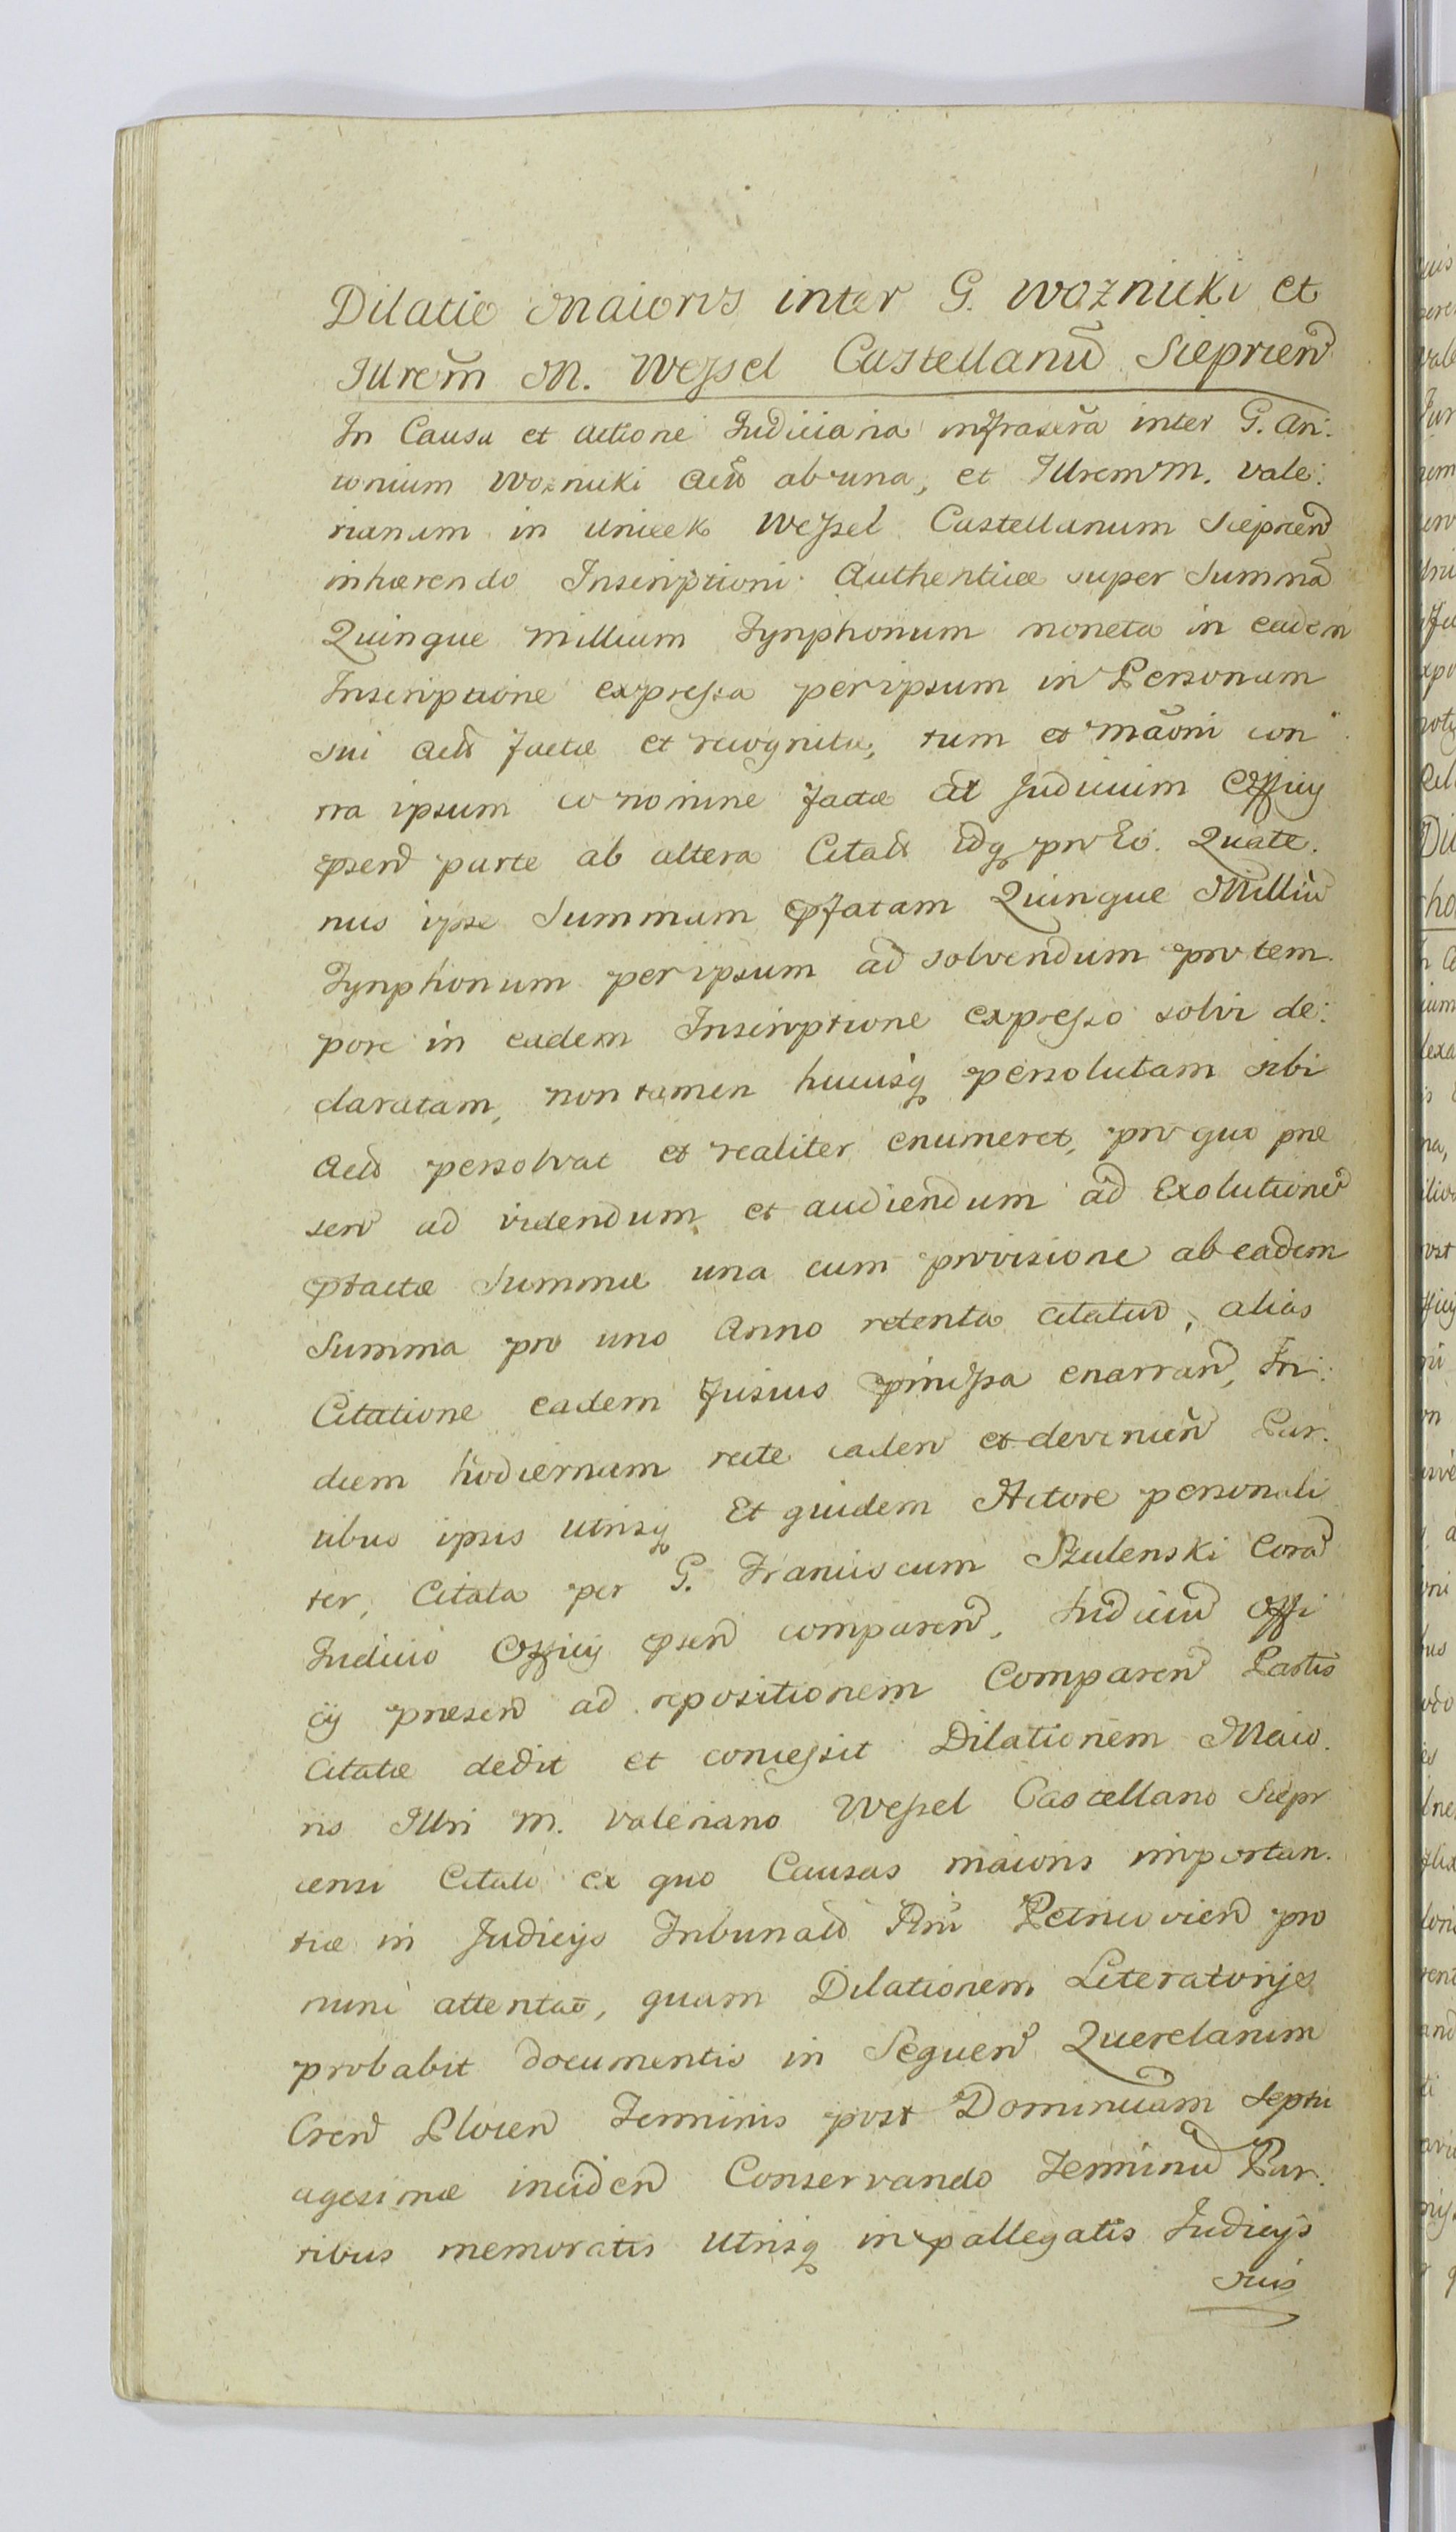 Dilatio Maioris inter G. Woznicki et
Illrem̃ M. Wessel Castellanũ Sieprien̄
In Causa et Actione Judiciaria infrascr̃a inter G. An:
tonium Woznicki Act̄ ab una, et Illrem M. Vale:
rianum in Unieck Wessel Castellanum Sieprien̄
inhærendo Inscriptioni Authenticæ super Summã
Quinque millium Tynphonum moneta in eadem
Inscriptione expressa per ipsum in Personam
sui Act̄ factæ et recognitæ, tum et mãoni con
tra ipsum eo nomine factæ ad Judicium Officÿ
p̄sen̄ parte ab altera Citat̄ idq̨ pro Eo. Quate:
nus ipse Summam p̄fatam Quinque Milliũ
Tynphonum per ipsum ad solvendum pro tem:
pore in eadem Inscriptione expresso solvi de:
claratam, non tamen hucusq̨ persolutam sibi
Act̄ persolvat et realiter enumeret, pro quo præ
sen̄ ad videndum et audiendum ad Exolutionẽ
p̄tactæ Summæ una cum provisione ab eadem
Summa pro uno Anno retenta citatur, alias
Citatione eadem fusius p̄missa enarran̄, In:
diem hodiernam recte caden̄ et devenien̄ Par:
tibus ipsis utrisq̨ Et quidem Actore personali
ter, Citata per G. Franciscum Szulenski Corã
Judicio Officÿ p̄sen̄ comparen̄. Judiciũ Offi
cÿ præsen̄ ad repositionem Comparen̄ Partis
Citatæ dedit et concessit Dilationem Maio:
ris Illri M. Valeriano Wessel Castellano Siepr
censi Citato ex quo Causas maioris importan:
tiæ in Judicÿs Tribunal̄ Rñi Petricovien̄ pro
nunc attentat̄, quam Dilationem Literatorÿs
probabit documentis in Sequen̄ Querelarum
Cren̄ Plocen̄ Terminis post Dominicam Septu
agesimæ inciden̄ Conservando Terminũ Par:
tibus memoratis utrisq̨ in p̄allegatis Judicÿs
suis